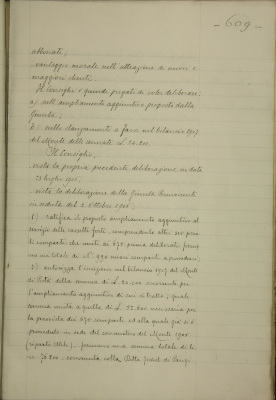 - 609 -
abbonati;
vantaggio morale nell'attrazione di nuovi e
maggiori clienti.
Il Consiglio è quindi pregato di voler deliberare:
a) sull'ampliamento aggiuntivo proposto dalla
Giunta;
b) sullo stanziamento a farsi nel bilancio 1907
del Monte delle
Il Consiglio,
vista la propria precedente deliberazione in data
luglio
vista la deliberazione della Giunta
in seduta del 2 Ottobre 1906;
1) ratifica il proposto ampliamento aggiuntivo al
servizio delle cassette forti, comprendente altri
scomparti che uniti ai 670 prima deliberati forma-
no un totale di N.° 890 nuovi scomparti a
2) autorizza l'iscrizione nel bilancio 1907 del Monte
di Pietà della somma di L. necessaria per
l'ampliamento aggiuntivo di cui si tratta, quale
somma unita a quella di L. necessaria per
la provvista dei 670 scomparti ed alla quale già si è
provveduto in sede del consuntivo del Monte
(riparto Utili), formano una somma totale di li-
re convenuta colla Ditta